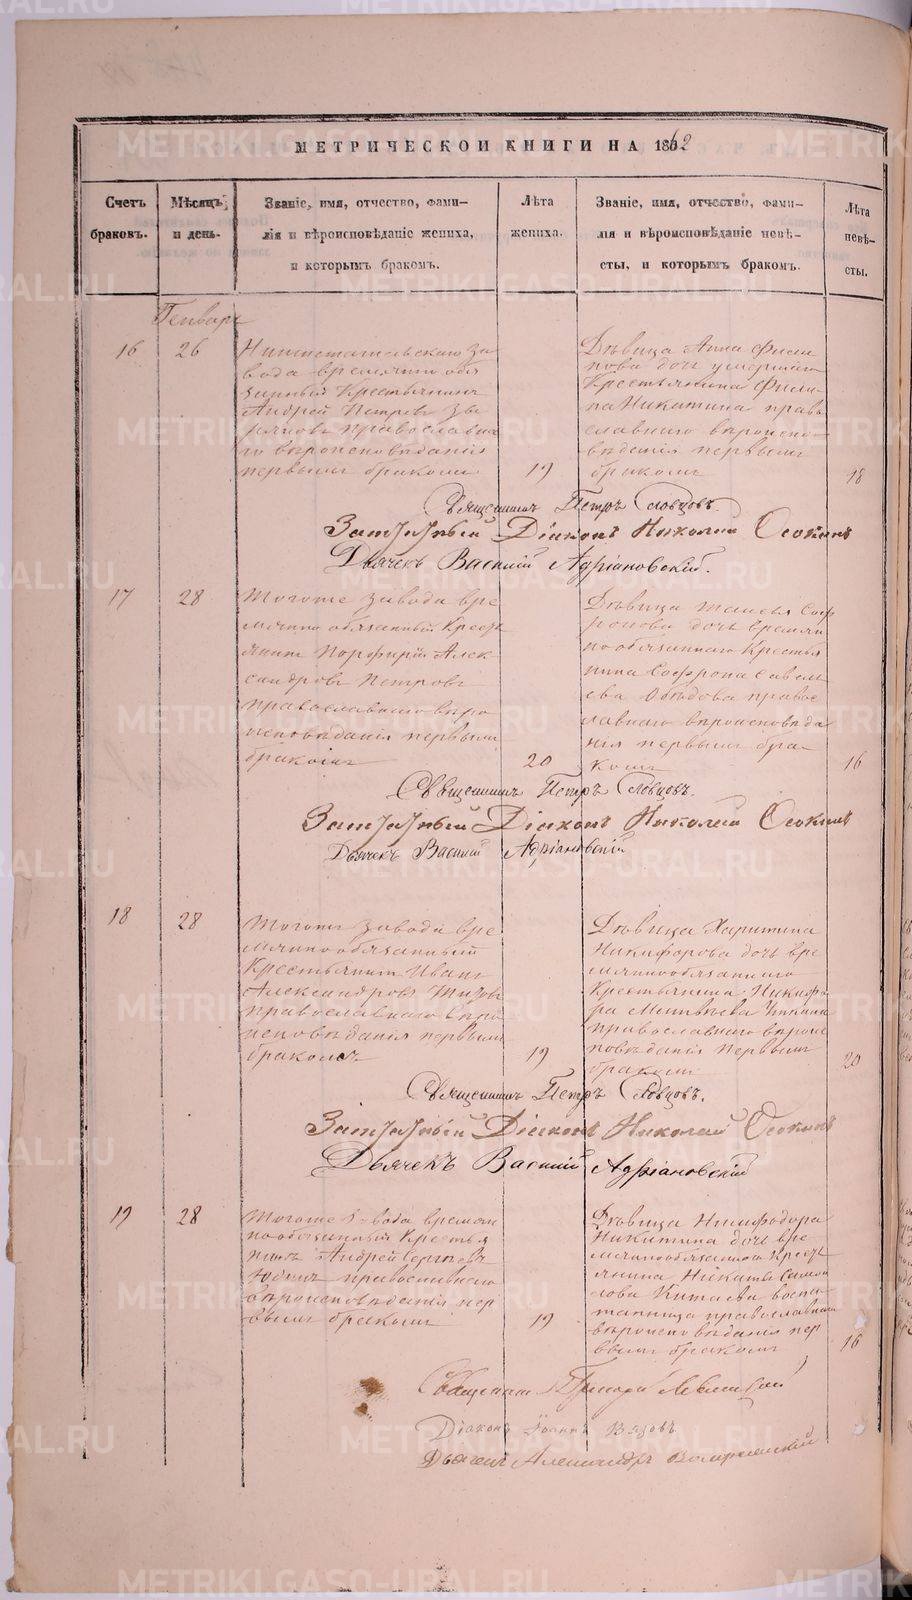 МЕТРИЧЕСКОЙ КНИГИ НА 1862
Счетъ браковъ.
Мѣсяцъ и день.
Званіе, имя, отчество, фами-
лія и вѣроисповѣданіе жениха,
и которымъ бракомъ.
Лѣта жениха.
Званіе, имя, отчество, фами-
лія и вѣроисповѣданіе невѣ-
сты, и которымъ бракомъ.
Лѣта невѣ-
сты.
Генварь
16
26
вода временно обя
занный Крестьянинъ
Андрей Петровъ
православна
го вѣроисповѣданія
первымъ бракомъ
19
Дѣвица Анна Филип
пова дочь умершаго
Крестьянина Филип
па Никитина право
славнаго вѣроиспо-
вѣданія первымъ
бракомъ
18
Священникъ Петръ Словцовъ.
Заштатный Діаконъ Николай Осокинъ
Дьячекъ Василій Адріановскій.
17
28
Тогоже завода вре
мянно обязанный Кресть
янинъ Порфирій Алек
сандровъ Петровъ
православнаго вѣро
исповѣданія первымъ
бракомъ
20
Дѣвица Соф
ронова дочь времян
нообязаннаго Кресть
янина Софрона Савель
ева правос
лавнаго вѣроисповѣда
нія первымъ бра-
комъ
16
Священникъ Петръ Словцовъ.
Заштатный Діаконъ Николай Осокинъ
Дьячекъ Василій Адріановскій
18
28
Тогоже завода вре
мяннообязанный
Крестьянинъ Иванъ
Александровъ
православнаго вѣро
исповѣданія первымъ
бракомъ
19
Дѣвица Харитина
Никифорова дочь вре
мяннообязаннаго
Крестьянина Никифо
ра
православнаго вѣроис
повѣданія первымъ
бракомъ
20
Священникъ Петръ Словцовъ.
Заштатный Діаконъ Николай Осокинъ
Дьячекъ Василій Адріановскій
19
28
Тогоже завода времян
нообязанный Крестья
нинъ Андрей Сергѣевъ
православнаго
вѣроисповѣданія пер
вымъ бракомъ
19
Дѣвица Нимфодора
Никитина дочь вре
мяннообязаннаго Кресть
янина Никиты
православнаго
вѣроисповѣданія пер
вымъ бракомъ
16
Священникъ Григорій
Діаконъ Іоаннъ Вязовъ
Дьячекъ Александръ
METRIKI.GASO-URAL.RU